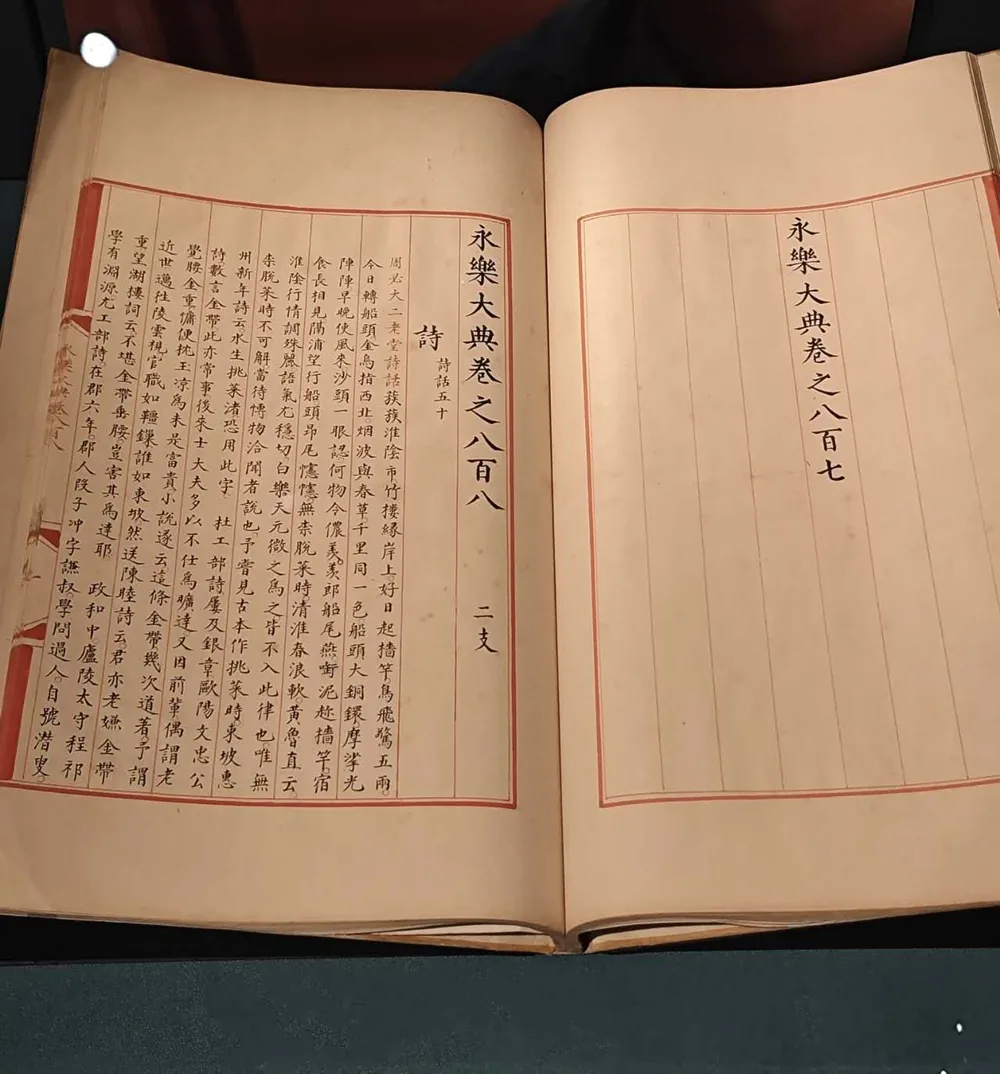 永樂大典卷之八百七
永樂大典卷之八百八 二支
詩 詩話五十
周必大二老堂詩話蔟蔟淮陰市竹樓緣岸上。好日起檣竿。烏飛驚五兩。
今日轉船頭。金烏指西北。烟波與春草。千里同一色。船頭大銅鐶。摩挲光
陣陣。早晚使風來。沙頭一眼認。何物令儂羨。羨郎船尾燕。銜泥趂檣竿。宿
食長相見。隔浦望行船。頭昻尾幰幰。無柰脫萊時。清淮春浪軟。黃魯直云。
淮陰行情調殊麗。語氣尤穩切。白樂天元微之爲之。皆不入此律也。唯無
柰脫萊時不可解。當待博物洽聞者說也。予嘗見古本作挑菜時。東坡惠
州新年詩云。水生挑菜渚。恐用此字 杜工部詩屢及銀章。歐陽文忠公
詩數言金帶。此亦常事。後來士大夫多以不仕爲曠達。又因前輩偶謂老
覺腰金重。慵便枕玉凉。爲未是富貴。小說遂云這條金帶幾次道著。予謂
近世邁往陵雲。視官職如韁鏁。誰如東坡。然送陳睦詩云。君亦老嫌金帶
重。望湖樓詞云。不堪金帶垂腰。豈害其爲達耶 政和中。廬陵太守程祁
學有淵源。尤工部詩。在郡六年。郡人段子冲字謙叔。學問過人。自號潛叟。
永樂大典卷八百八